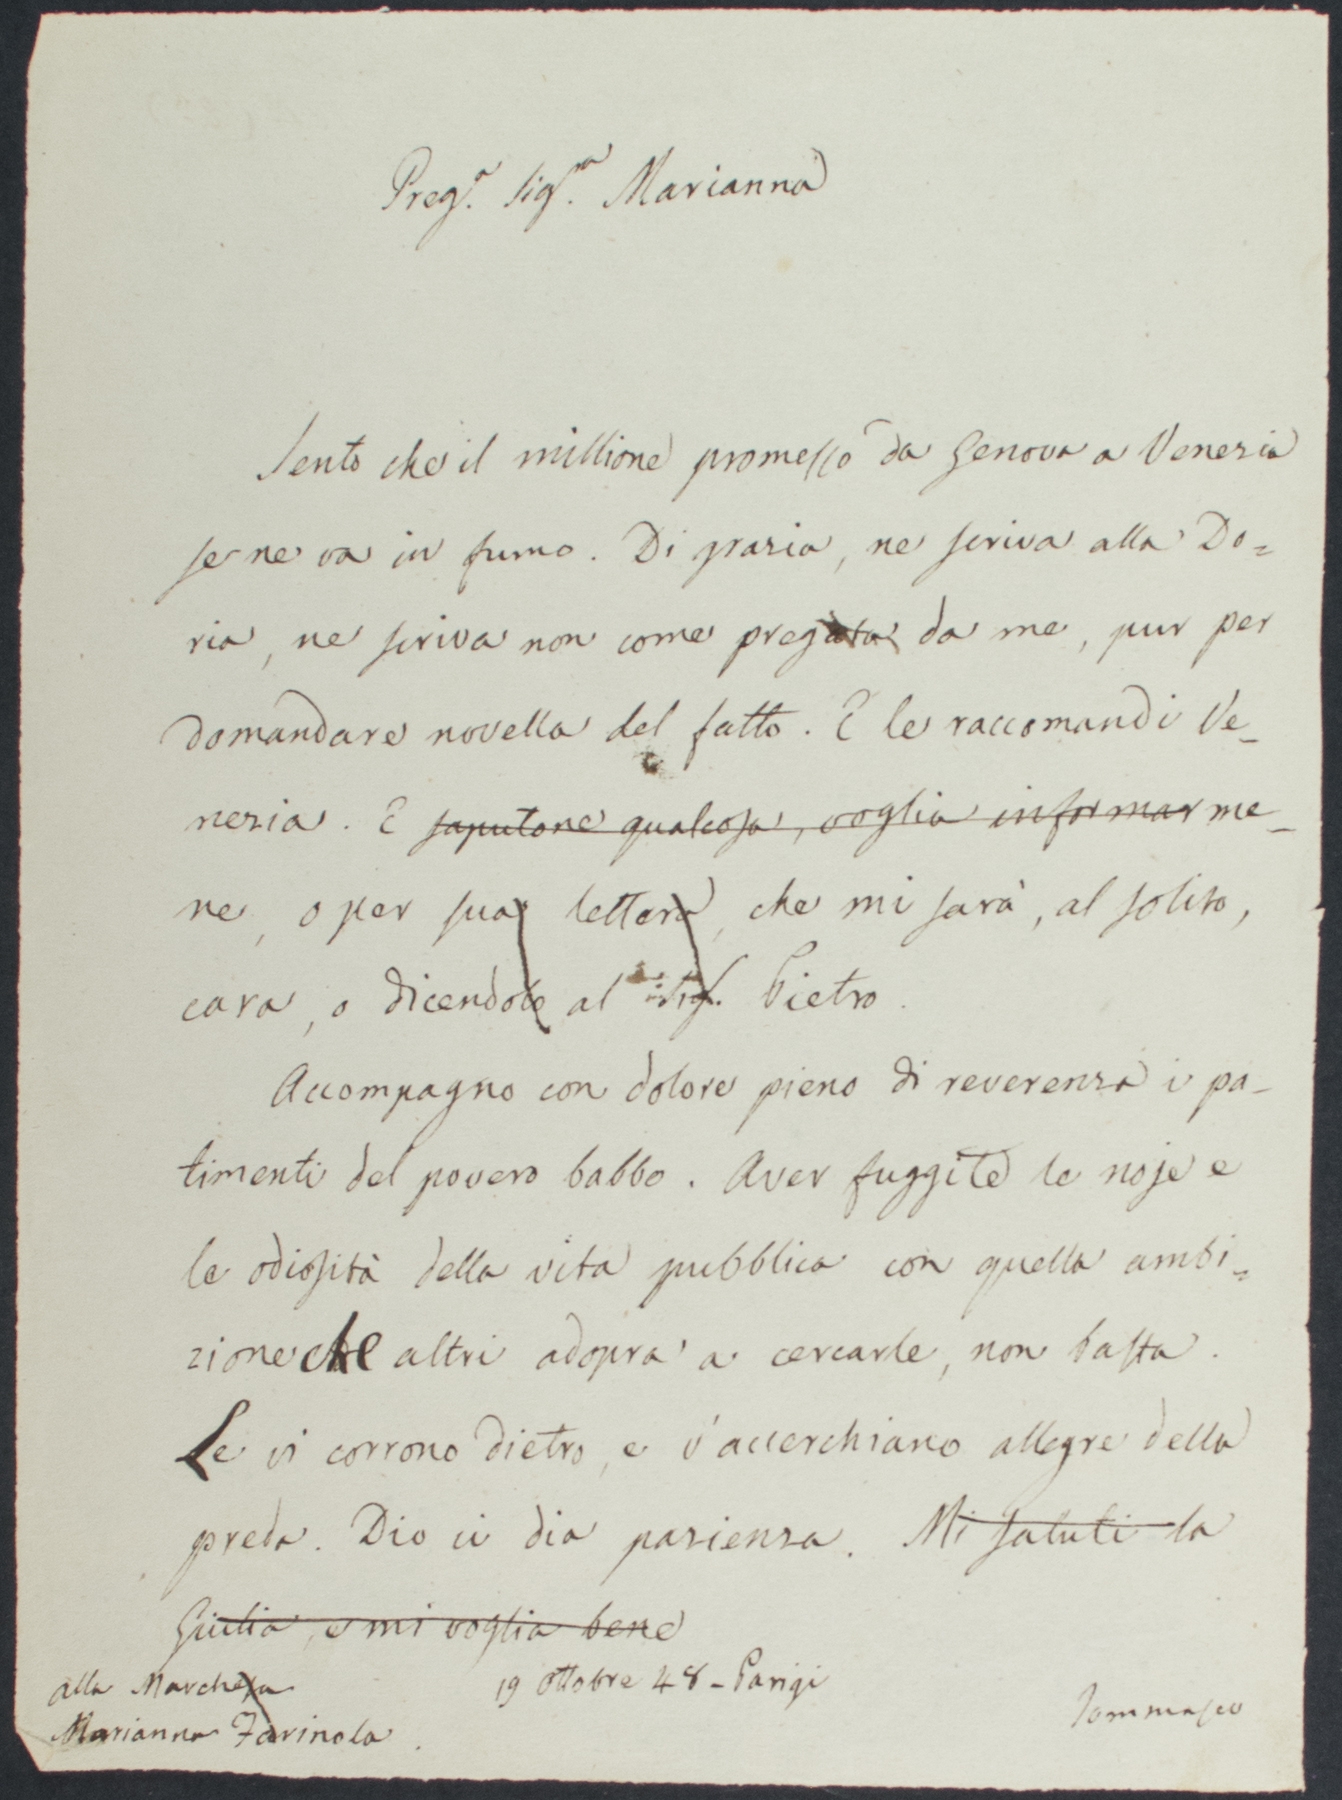 Preg.ª Sig.ra Marianna
Sento che il millione promesso da Genova a Venezia
se ne va in fumo. Di grazia, ne scriva alla Do=
ria, ne scriva non come pregata da me, pur per
domandare novella del fatto. E le raccomandi Ve-
nezia. E saputone qualcosa, voglia informarme-
ne, o per sua lettera, che mi sarà, al solito,
cara, o dicendolo al Sig. Pietro.
Accompagno con dolore pieno di reverenza i pa-
timenti del povero babbo. Aver fuggite le noje e
le odiosità della vita pubblica con quella ambi=
zione che altri adopra a cercarle, non basta.
Le vi corrono dietro, e v'accerchiano allegre della
preda. Dio ci dia pazienza. Mi saluti la
Giulia, e mi voglia bene
19 Ottobre 48 - Parigi
Tommaseo
alla Marchesa
Marianna Farinola.